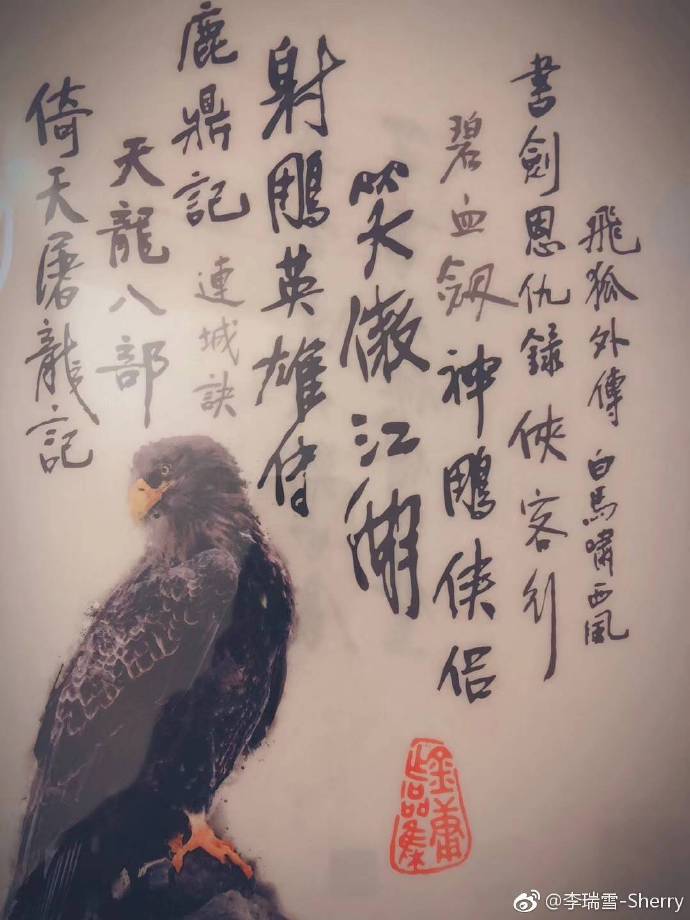 飛狐外傳 白馬嘯西風
書劍恩仇錄 俠客行
碧血劍 神鵰俠侶
笑傲江湖
射鵰英雄傳
鹿鼎記 連城訣
天龍八部
倚天屠龍記
金庸
作品集
@李瑞雪-Sherry